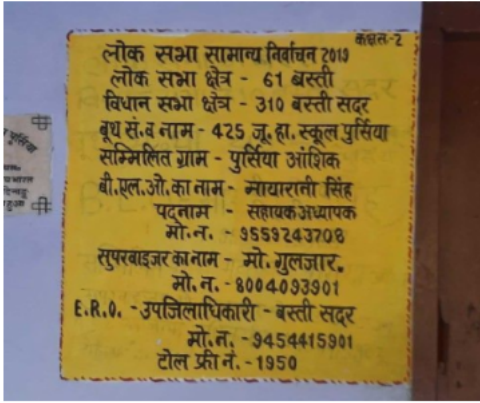 कक्षक-2
लोक सभा सामान्य निर्वाचन 2019
लोक सभा क्षेत्र - 61 बस्ती
विधान सभा क्षेत्र - 310 बस्ती सदर
बूथ सं. व नाम - 425 जू. हा. स्कूल पुर्सिया
सम्मिलित ग्राम - पुर्सिया आंशिक
बी.एल.ओ. का नाम - मायारानी सिंह
पदनाम - सहायक अध्यापक
मो.न. - 9559243708
सुपरवाइजर का नाम - मो. गुलजार.
मो.न. - 8004093901
E.R.O. - उपजिलाधिकारी - बस्ती सदर
मो.न. - 9454415901
टोल फ्री नं. - 1950